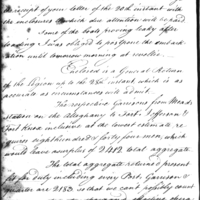 receipt of your letter of the 20th instant with
the enclosures to which due attention will be paid
Some of the boats proving leaky after
loading I was obliged to postpone the embark-
ation until tomorrow morning at reveillee.
Enclosed is a General Return
of the Legion to the 28th instant which is as
accurate as circumstances will admit.
The respective Garrisons from Meads
station on the Allegheny to Forts Jefferson &
Fort Knox inclusive at the lowest estimate re-
quires eight hundred & forty four men, which
would leave nonplus of 2412 total aggregate
The total aggregate returned present
for duty including every Post, Garrison &
quarter are 2183 so that we can't possibly count